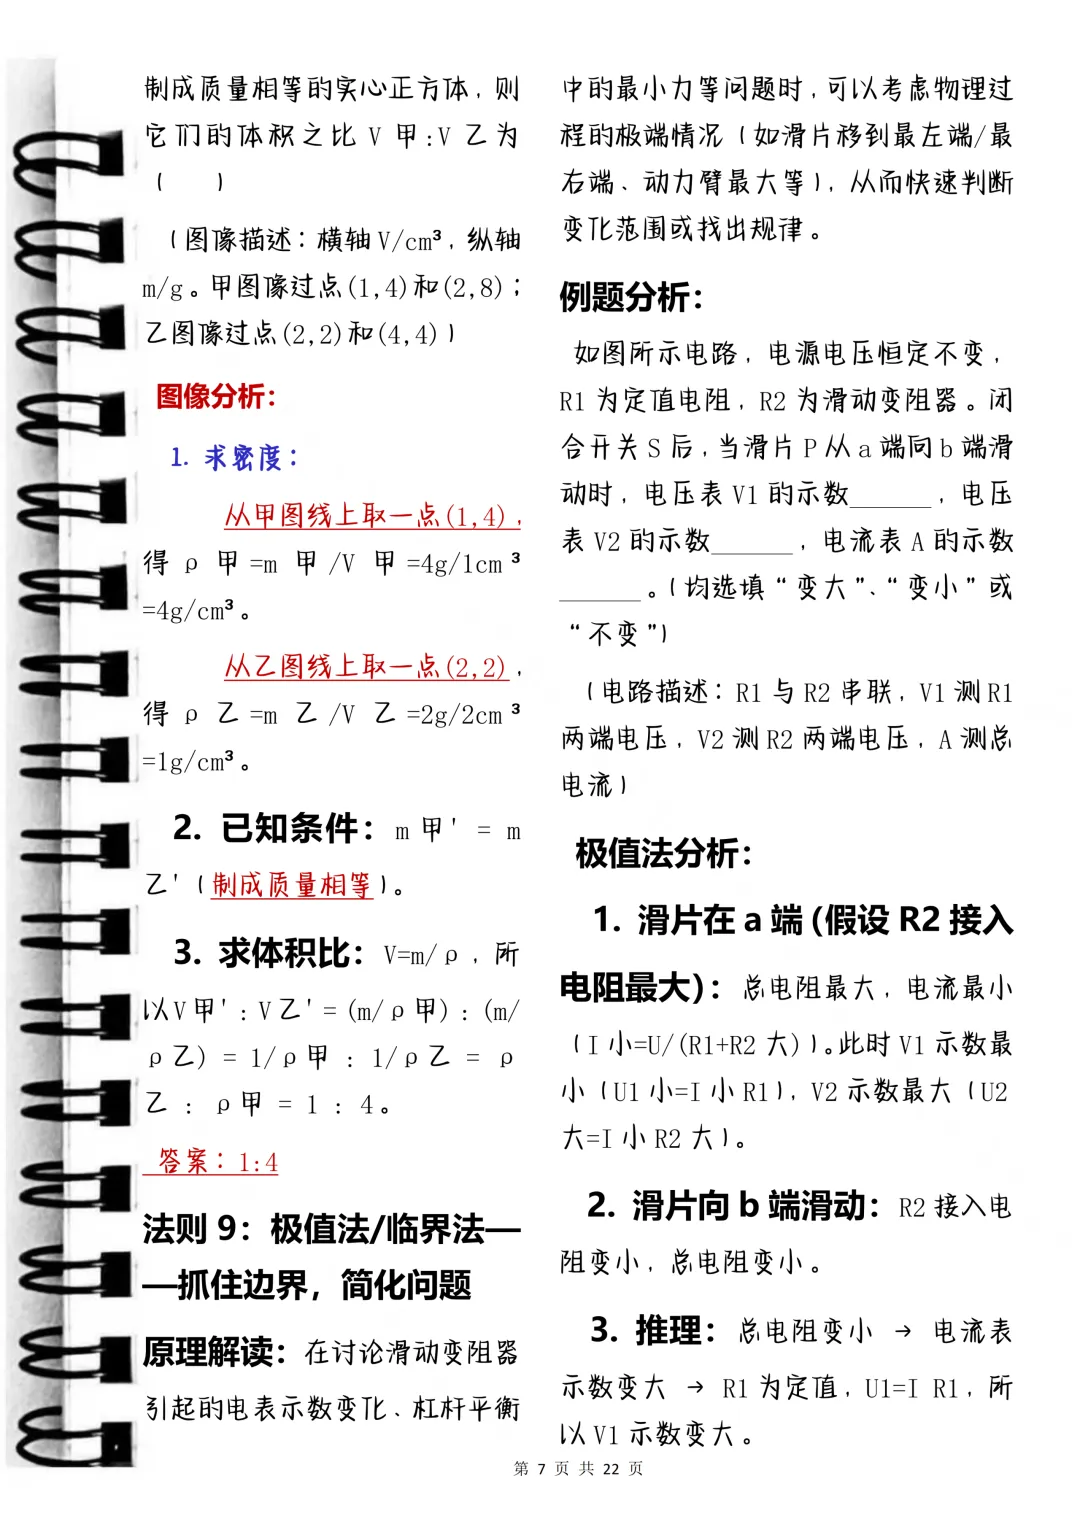 制成质量相等的实心正方体，则
它们的体积之比 V 甲:V 乙为
（　　）
（图像描述：横轴 V/cm³，纵轴
m/g。甲图像过点(1,4)和(2,8)；
乙图像过点(2,2)和(4,4)）
图像分析：
1. 求密度：
从甲图线上取一点(1,4)，
得 ρ 甲 =m 甲 /V 甲 =4g/1cm³
=4g/cm³。
从乙图线上取一点(2,2)，
得 ρ 乙 =m 乙 /V 乙 =2g/2cm³
=1g/cm³。
2. 已知条件：m 甲' = m
乙'（制成质量相等）。
3. 求体积比：V=m/ρ，所
以 V 甲' : V 乙' = (m/ρ甲) : (m/
ρ乙) = 1/ρ甲 : 1/ρ乙 = ρ
乙 : ρ甲 = 1 : 4。
答案：1:4
法则 9：极值法/临界法—
—抓住边界，简化问题
原理解读：在讨论滑动变阻器
引起的电表示数变化、杠杆平衡
中的最小力等问题时，可以考虑物理过
程的极端情况（如滑片移到最左端/最
右端、动力臂最大等），从而快速判断
变化范围或找出规律。
例题分析：
如图所示电路，电源电压恒定不变，
R1 为定值电阻，R2 为滑动变阻器。闭
合开关 S 后，当滑片 P 从 a 端向 b 端滑
动时，电压表 V1 的示数______，电压
表 V2 的示数______，电流表 A 的示数
______。（均选填“变大”、“变小”或
“不变”）
（电路描述：R1 与 R2 串联，V1 测 R1
两端电压，V2 测 R2 两端电压，A 测总
电流）
极值法分析：
1. 滑片在 a 端 (假设 R2 接入
电阻最大)：总电阻最大，电流最小
（I 小=U/(R1+R2 大)）。此时 V1 示数最
小（U1 小=I 小 R1），V2 示数最大（U2
大=I 小 R2 大）。
2. 滑片向 b 端滑动：R2 接入电
阻变小，总电阻变小。
3. 推理：总电阻变小 → 电流表
示数变大 → R1 为定值，U1=I R1，所
以 V1 示数变大。
第 7 页 共 22 页